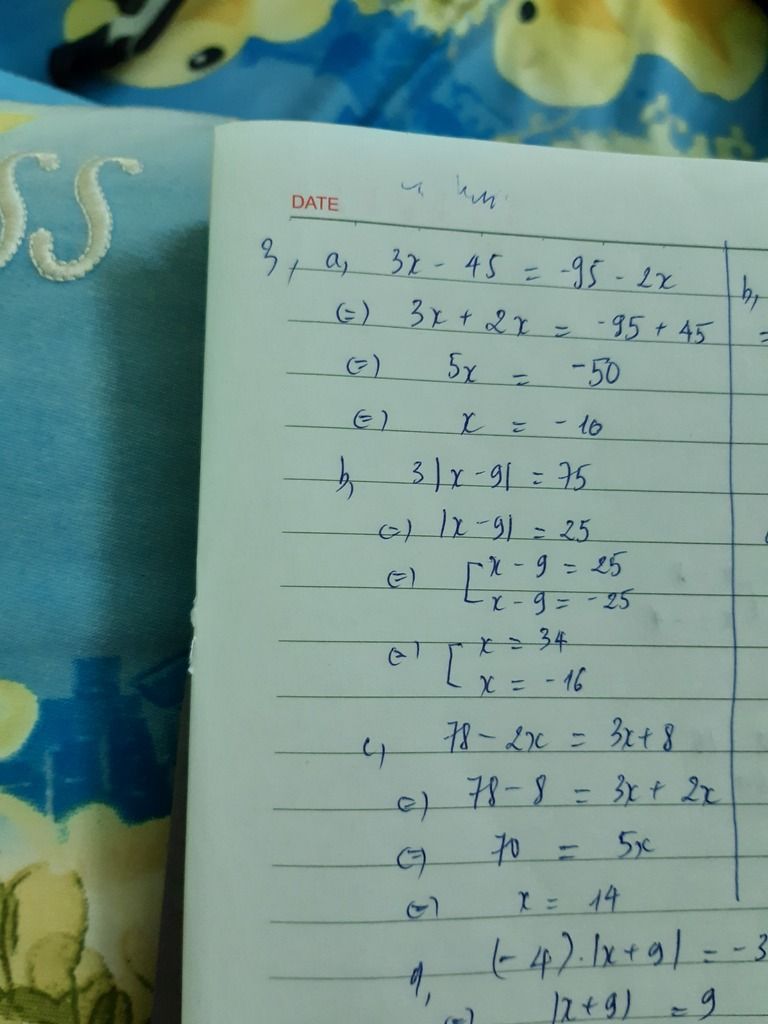 SS
DATE
3, a, 3x - 45 = -95 - 2x
(=) 3x + 2x = -95 + 45
(=) 5x = -50
(=) x = -10
b, 3|x-9| = 75
(=) |x-9| = 25
(=) [ x - 9 = 25
x - 9 = -25
(=) [ x = 34
x = -16
c, 78 - 2x = 3x + 8
(=) 78 - 8 = 3x + 2x
(=) 70 = 5x
(=) x = 14
(-4).|x+9| = -3
(=) |x+9| = 9
b,
=